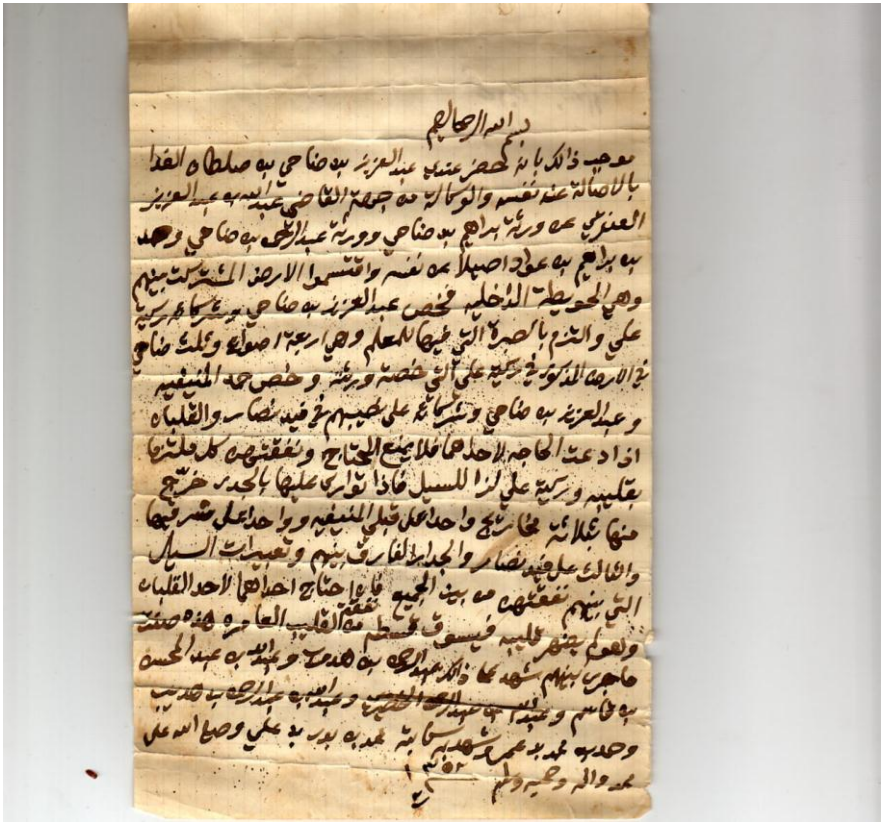 بسم الله الرحمن الرحيم
موجب ذالك بانه حضر عندي عبدالعزيز بن ضاحي بن صلطان الفدا
بالاصالة عن نفسه والوكالة من جهة القاضي عبدالله بن عبدالعزيز
العنقري عن ورثة براهيم بن ضاحي وورثة عبدالرحمن بن ضاحي وحمد
بن براهيم بن عواد اصيلاً عن نفسه واقتسموا الارض المشتركت بينهم
وهي الحويطة الداخليه فخص عبدالعزيز بن ضاحي وشركائه ركية
علي والتزم بالصبرة التي فيها للمعلم وهي اربعة اصواع وثلث ضاحي
في الارض المذكوره في ركية علي التي خصة ورثته وخص حمد المنيفيه
وعبدالعزيز بن ضاحي وشركائه على نصيبهم في فيد نصار والقلبان
اذا دعت الحاجه لاحداهما فلا يمنع المحتاج ونفقتهن كل ملتزم
بقليبه وركية علي لزا للسيل فاذا توارى عليها بالجدر خرّج
منها ثلاثة مخاريج واحد على قبلي المنيفيه وواحد على مشرقيها
والثالث على فيد نصار والجدار الفارق بينهم وتعبيرات السيل
التي بينهم نفقتهن من بين الجميع فان احتاج احداهما لاحد القلبان
ولعواء بضهر قليبه فيسوق قسطه من نفقة القليب العامره هذه صفت
ماجرى بينهم شهد بما ذالك عبدالرحمن بن هدب وعبدالله بن عبدالمحسن
بن قاسم وعبدالله بن عبدالرحمن بن هديب
وحمد بن محمد بن عمر وشهد به كاتبه محمد بن بدر بن علي وصلى الله على
محمد واله وصحبه وسلم